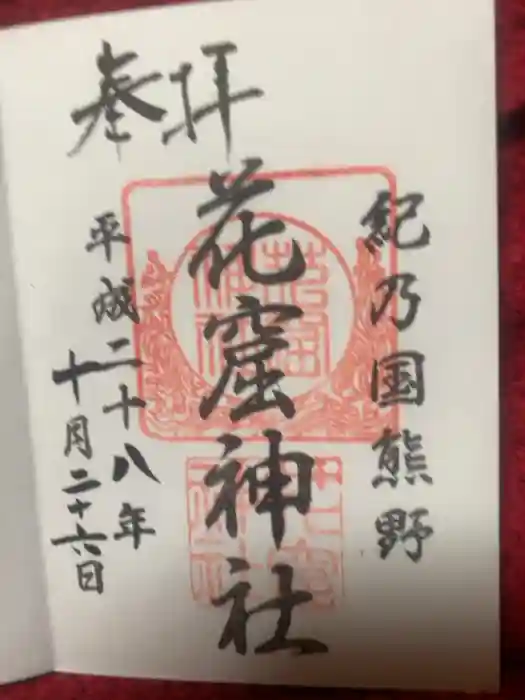 奉拝
紀乃国熊野
花窟神社
平成二十八年
十月二十六日